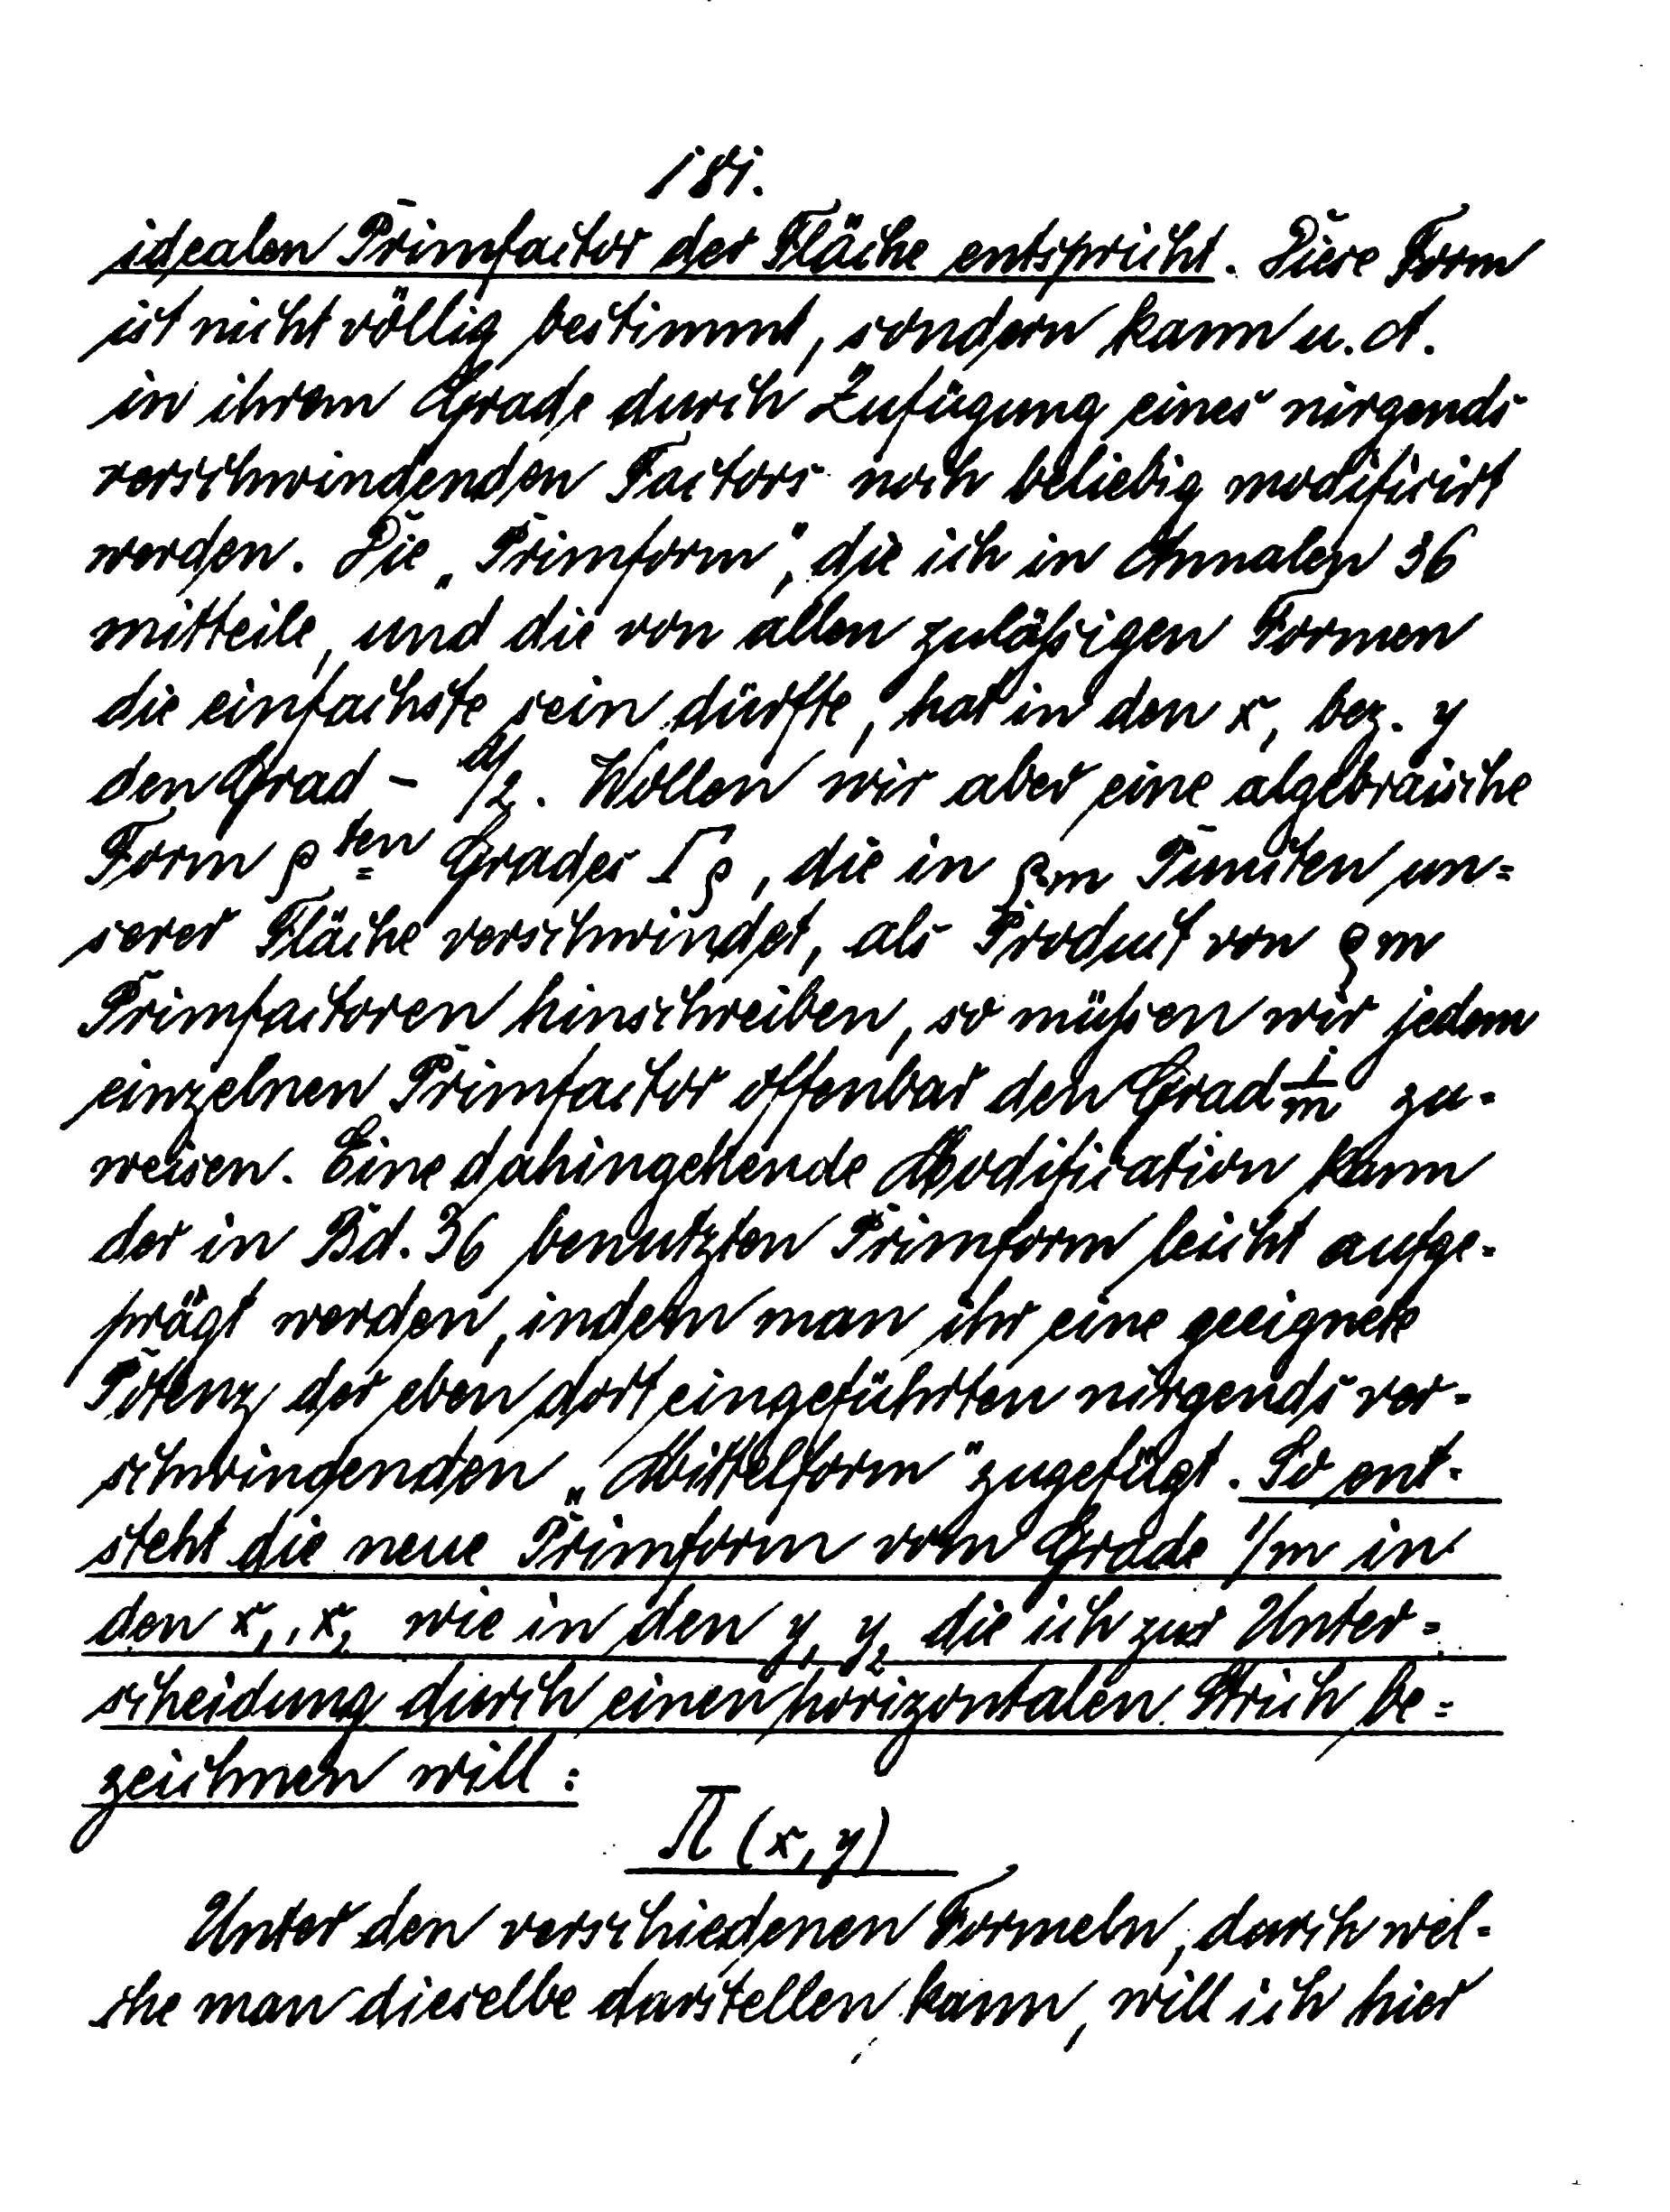 181.
idealen Primfactor der Fläche entspricht. Diese Form
ist nicht völlig bestimmt, sondern kann u. A.
in ihrem Grade durch Zufügung eines nirgends
verschwindenden Factors noch beliebig modificirt
werden. Die „Primform", die ich in Annalen 36
mitteile, und die von allen zuläßigen Formen
die einfachste sein dürfte, hat in den x, bez. y
den Grad - d/2. Wollen wir aber eine algebraische
Form ρten Grades Γρ, die in ρm Puncten un=
serer Fläche verschwindet, als Product von ρm
Primfactoren hinschreiben, so müßen wir jedem
einzelnen Primfactor offenbar den Grad 1/m zu-
weisen. Eine dahingehende Modification kann
der in Bd. 36 benutzten Primform leicht aufge-
prägt werden, indem man ihr eine geeignete
Potenz der eben dort eingeführten nirgends ver-
schwindenden „Mittelform" zugefügt. So ent-
steht die neue Primform vom Grade 1/m in
den x₁, x₂ wie in den y₁ y₂ die ich zur Unter=
scheidung durch einen horizontalen Strich be=
zeichnen will:
Π̅ (x, y)
Unter den verschiedenen Formeln, durch wel-
che man dieselbe darstellen kann, will ich hier